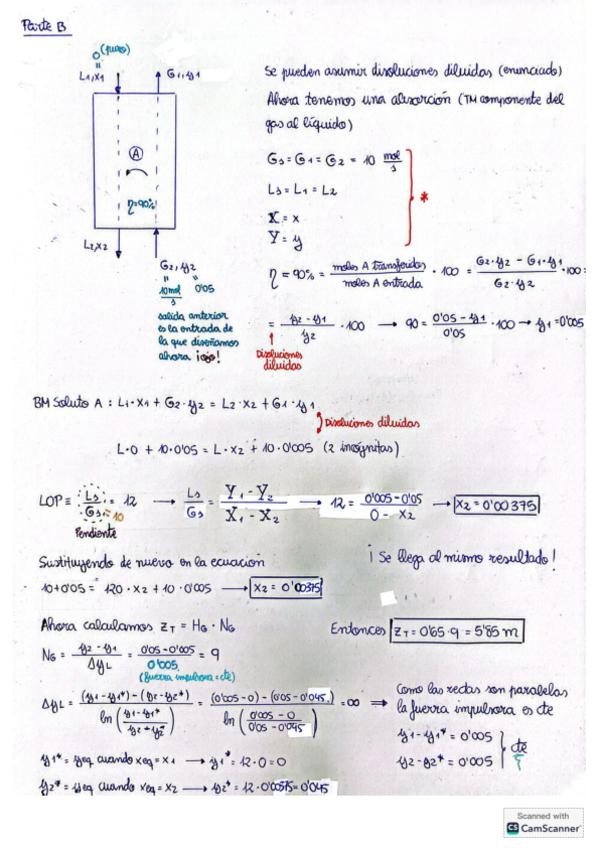 Parte B
0 (puro)
"
L1,x1
G1,y1
A
η=90%
L2,x2
G2,y2
" "
10 mol/s 0'05
salida anterior
es la entrada de
la que diseñamos
ahora ¡ojo!
Se pueden asumir disoluciones diluidas (enunciado)
Ahora tenemos una absorción (TM componente del
gas al líquido)
Gs = G1 = G2 = 10 mol/s
Ls = L1 = L2
X = x
Y = y
*
η = 90% = moles A transferidos / moles A entrada · 100 = G2·y2 - G1·y1 / G2·y2 · 100 =
= y2 - y1 / y2 · 100 → 90 = 0'05 - y1 / 0'05 · 100 → y1 = 0'005
Disoluciones
diluidas
BM Soluto A : L1·x1 + G2·y2 = L2·x2 + G1·y1
Disoluciones diluidas
L·0 + 10·0'05 = L·x2 + 10·0'005 (2 incógnitas)
LOP ≡ Ls / Gs = 12 → Ls / Gs = Y1 - Y2 / X1 - X2 → 12 = 0'005 - 0'05 / 0 - x2 → x2 = 0'00375
=10
Pendiente
Sustituyendo de nuevo en la ecuación
¡Se llega al mismo resultado!
10·0'05 = 120·x2 + 10·0'005 → x2 = 0'00375
Ahora calculamos zT = HG · NG
Entonces zT = 0'65·9 = 5'85 m
NG = y2 - y1 / ΔyL = 0'05 - 0'005 / 0'005 = 9
(fuerza impulsora = cte)
ΔyL = (y1 - y1*) - (y2 - y2*) / ln (y1 - y1* / y2 - y2*) = (0'005 - 0) - (0'05 - 0'045) / ln (0'005 - 0 / 0'05 - 0'045) = ∞ ⇒
Como las rectas son paralelas
la fuerza impulsora es cte
y1 - y1* = 0'005
y2 - y2* = 0'005
cte
y1* = yeq cuando xeq = x1 → y1* = 12·0 = 0
y2* = yeq cuando xeq = x2 → y2* = 12·0'00375 = 0'045
Scanned with
CS CamScanner